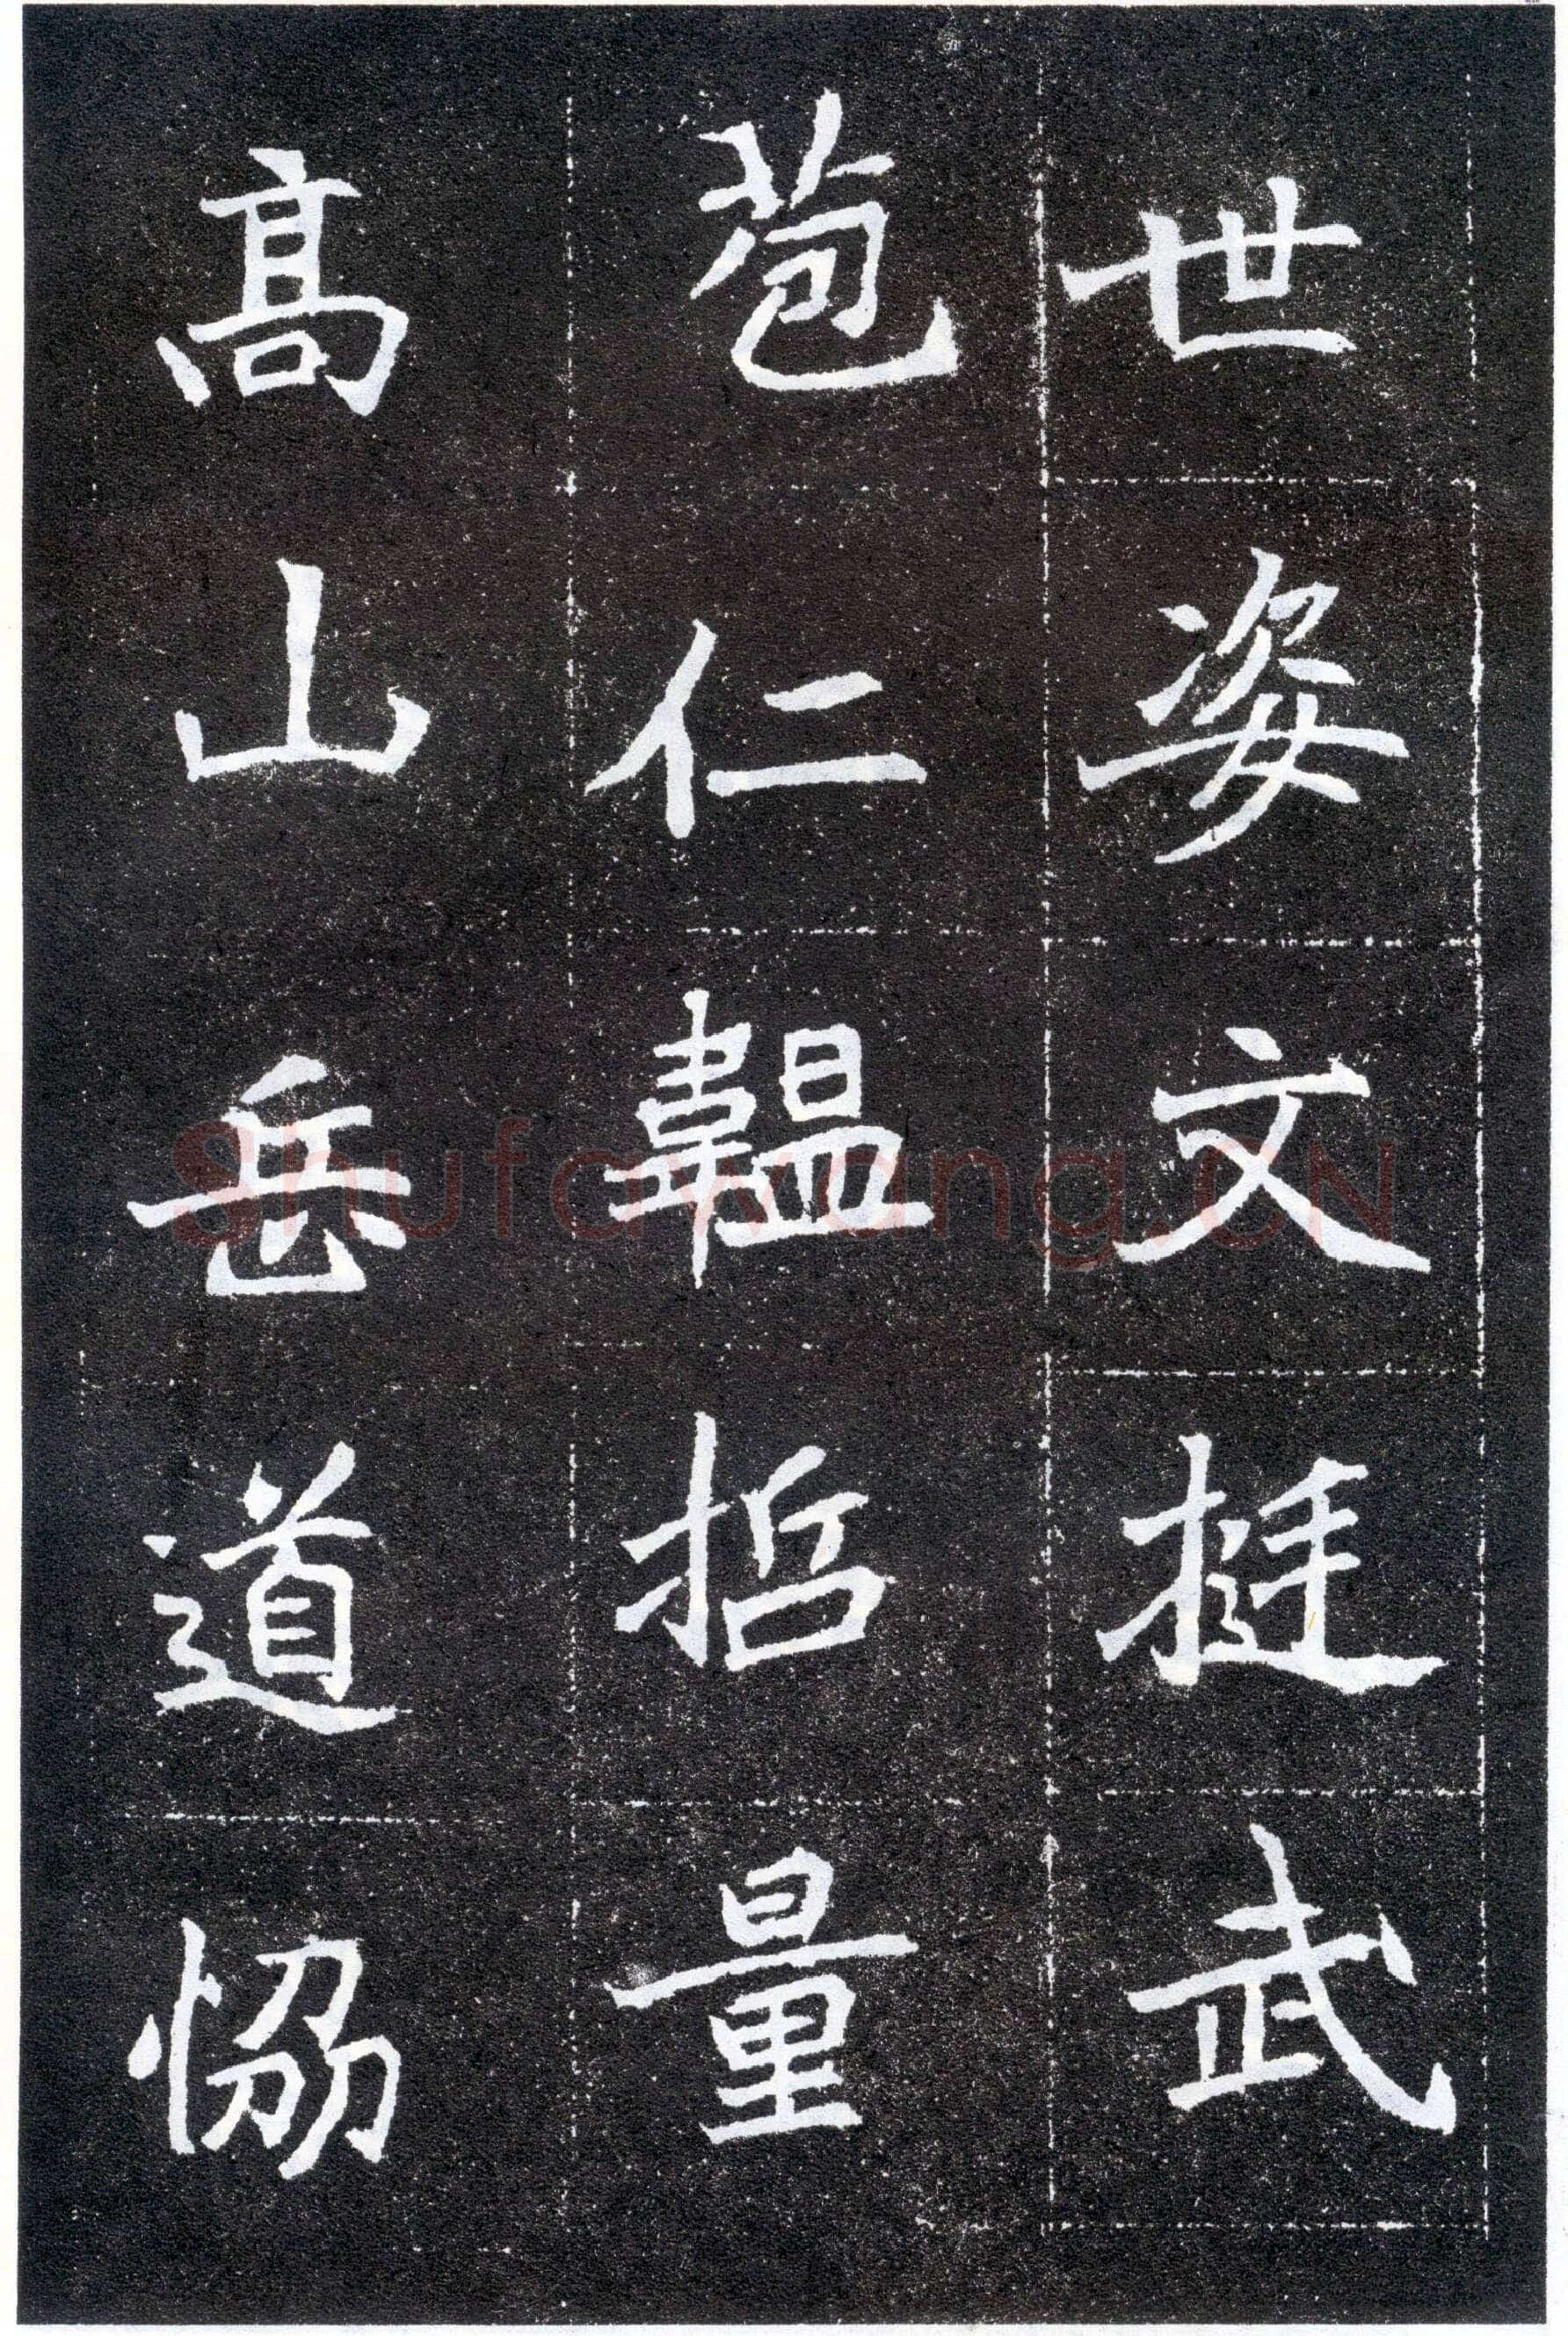 世姿文挺武
苞仁韞哲量
高山岳道恊
shufawang.CN